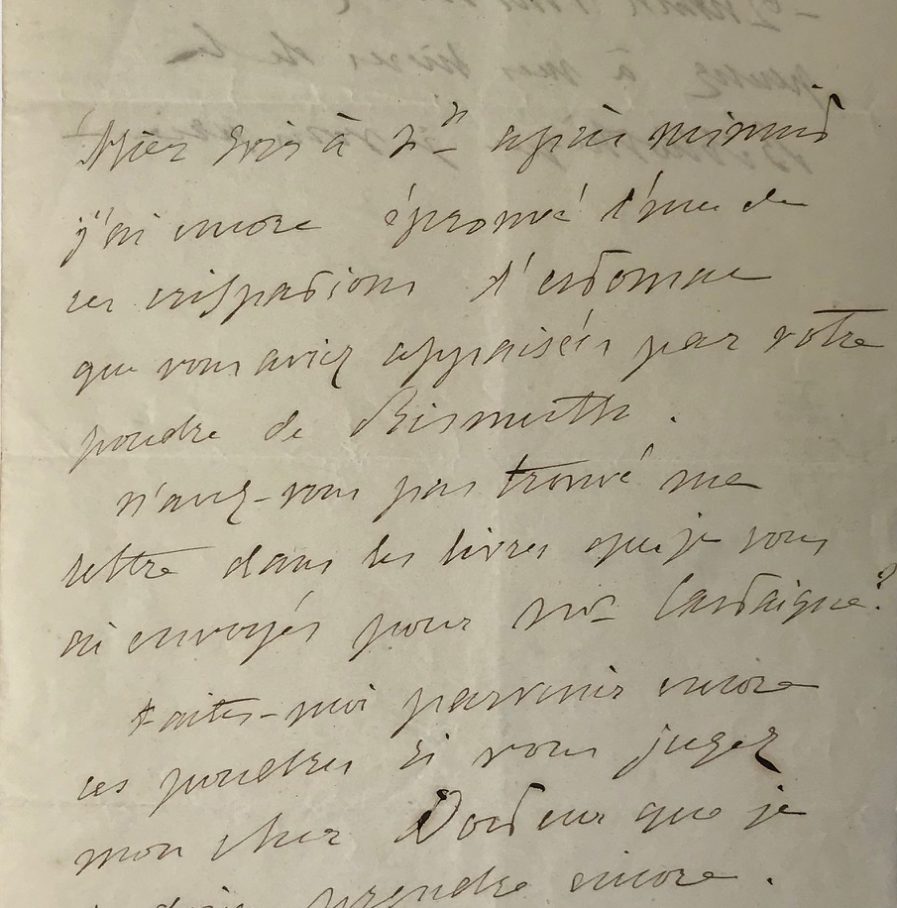 Hier soir à 2h après minuit
j'ai encore éprouvé l'une de
ces crispations d'estomac
que vous aviez appaisées par votre
poudre de Bismuth.
n'avez-vous pas trouvé une
lettre dans les livres que je vous
ai envoyés pour Mr Castaigne?
Faites-moi parvenir encore
ces poudres si vous jugez
mon cher Docteur que je
dois prendre encore.